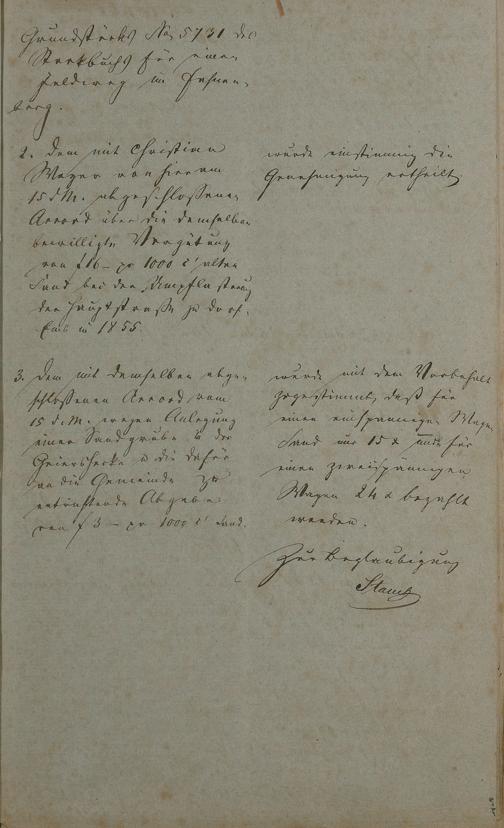 Grundstücks No 5731 des
Stockbuchs für einen
Feldweg im Fahnen-
berg.
2. Dem mit Christian
Wager von hier am
15 d. M. abgeschlossenen
Accord über die demselben
bewilligte Vergütung
von f 16 – pr 1000 c' alten
Sand bei der Umpflasterung
der Hauptstraße zu Dorf-
Ems in 1855.
wurde einstimmig die
Genehmigung ertheilt.
3. Dem mit demselben abge-
schlossenen Accord vom
15 d. M. wegen Anlegung
einer Sandgrube in der
Geiershecke u. die dafür
an die Gemeinde zu
entrichtende Abgabe
von f 3 – pr 1000 c' Sand.
wurde mit dem Vorbehalt
zugestimmt, daß für
einen einspännigen Wagen
Sand nur 15 x und für
einen zweispännigen
Wagen 24 x bezahlt
werden.
Zur Beglaubigung